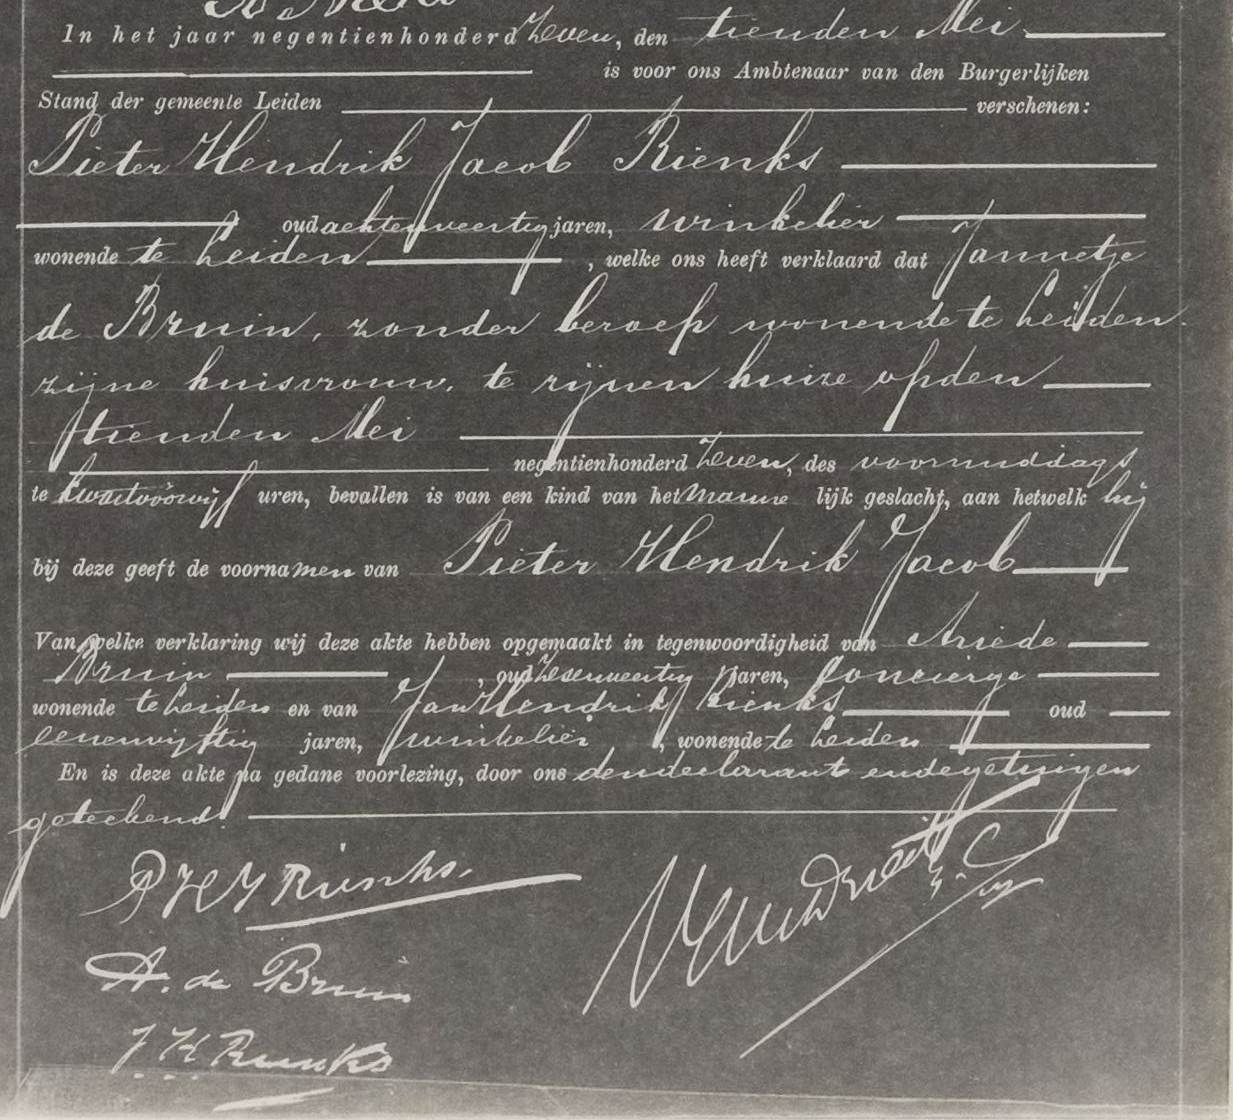 In het jaar negentienhonderd zeven, den tienden Mei
is voor ons Ambtenaar van den Burgerlijken
Stand der gemeente Leiden verschenen:
Pieter Hendrik Jacob Rienks
oud achtenveertig jaren, winkelier
wonende te Leiden , welke ons heeft verklaard dat Jannetje
de Bruin, zonder beroep wonende te Leiden.
zijne huisvrouw, te zijnen huize op den
tienden Mei
negentienhonderd zeven, des voormiddags
te kwartvoorvijf uren, bevallen is van een kind van het manne lijk geslacht, aan hetwelk hij
bij deze geeft de voornamen van Pieter Hendrik Jacob
Van welke verklaring wij deze akte hebben opgemaakt in tegenwoordigheid van Arie de
Bruin , oud jaren, concierge
wonende te Leiden en van Jan Hendrik Rienks oud
eenenvijftig jaren, winkelier , wonende te Leiden
En is deze akte na gedane voorlezing, door ons den declarant en de getuigen
geteekend.
P H J Rienks.
A. de Bruin
J H Rienks